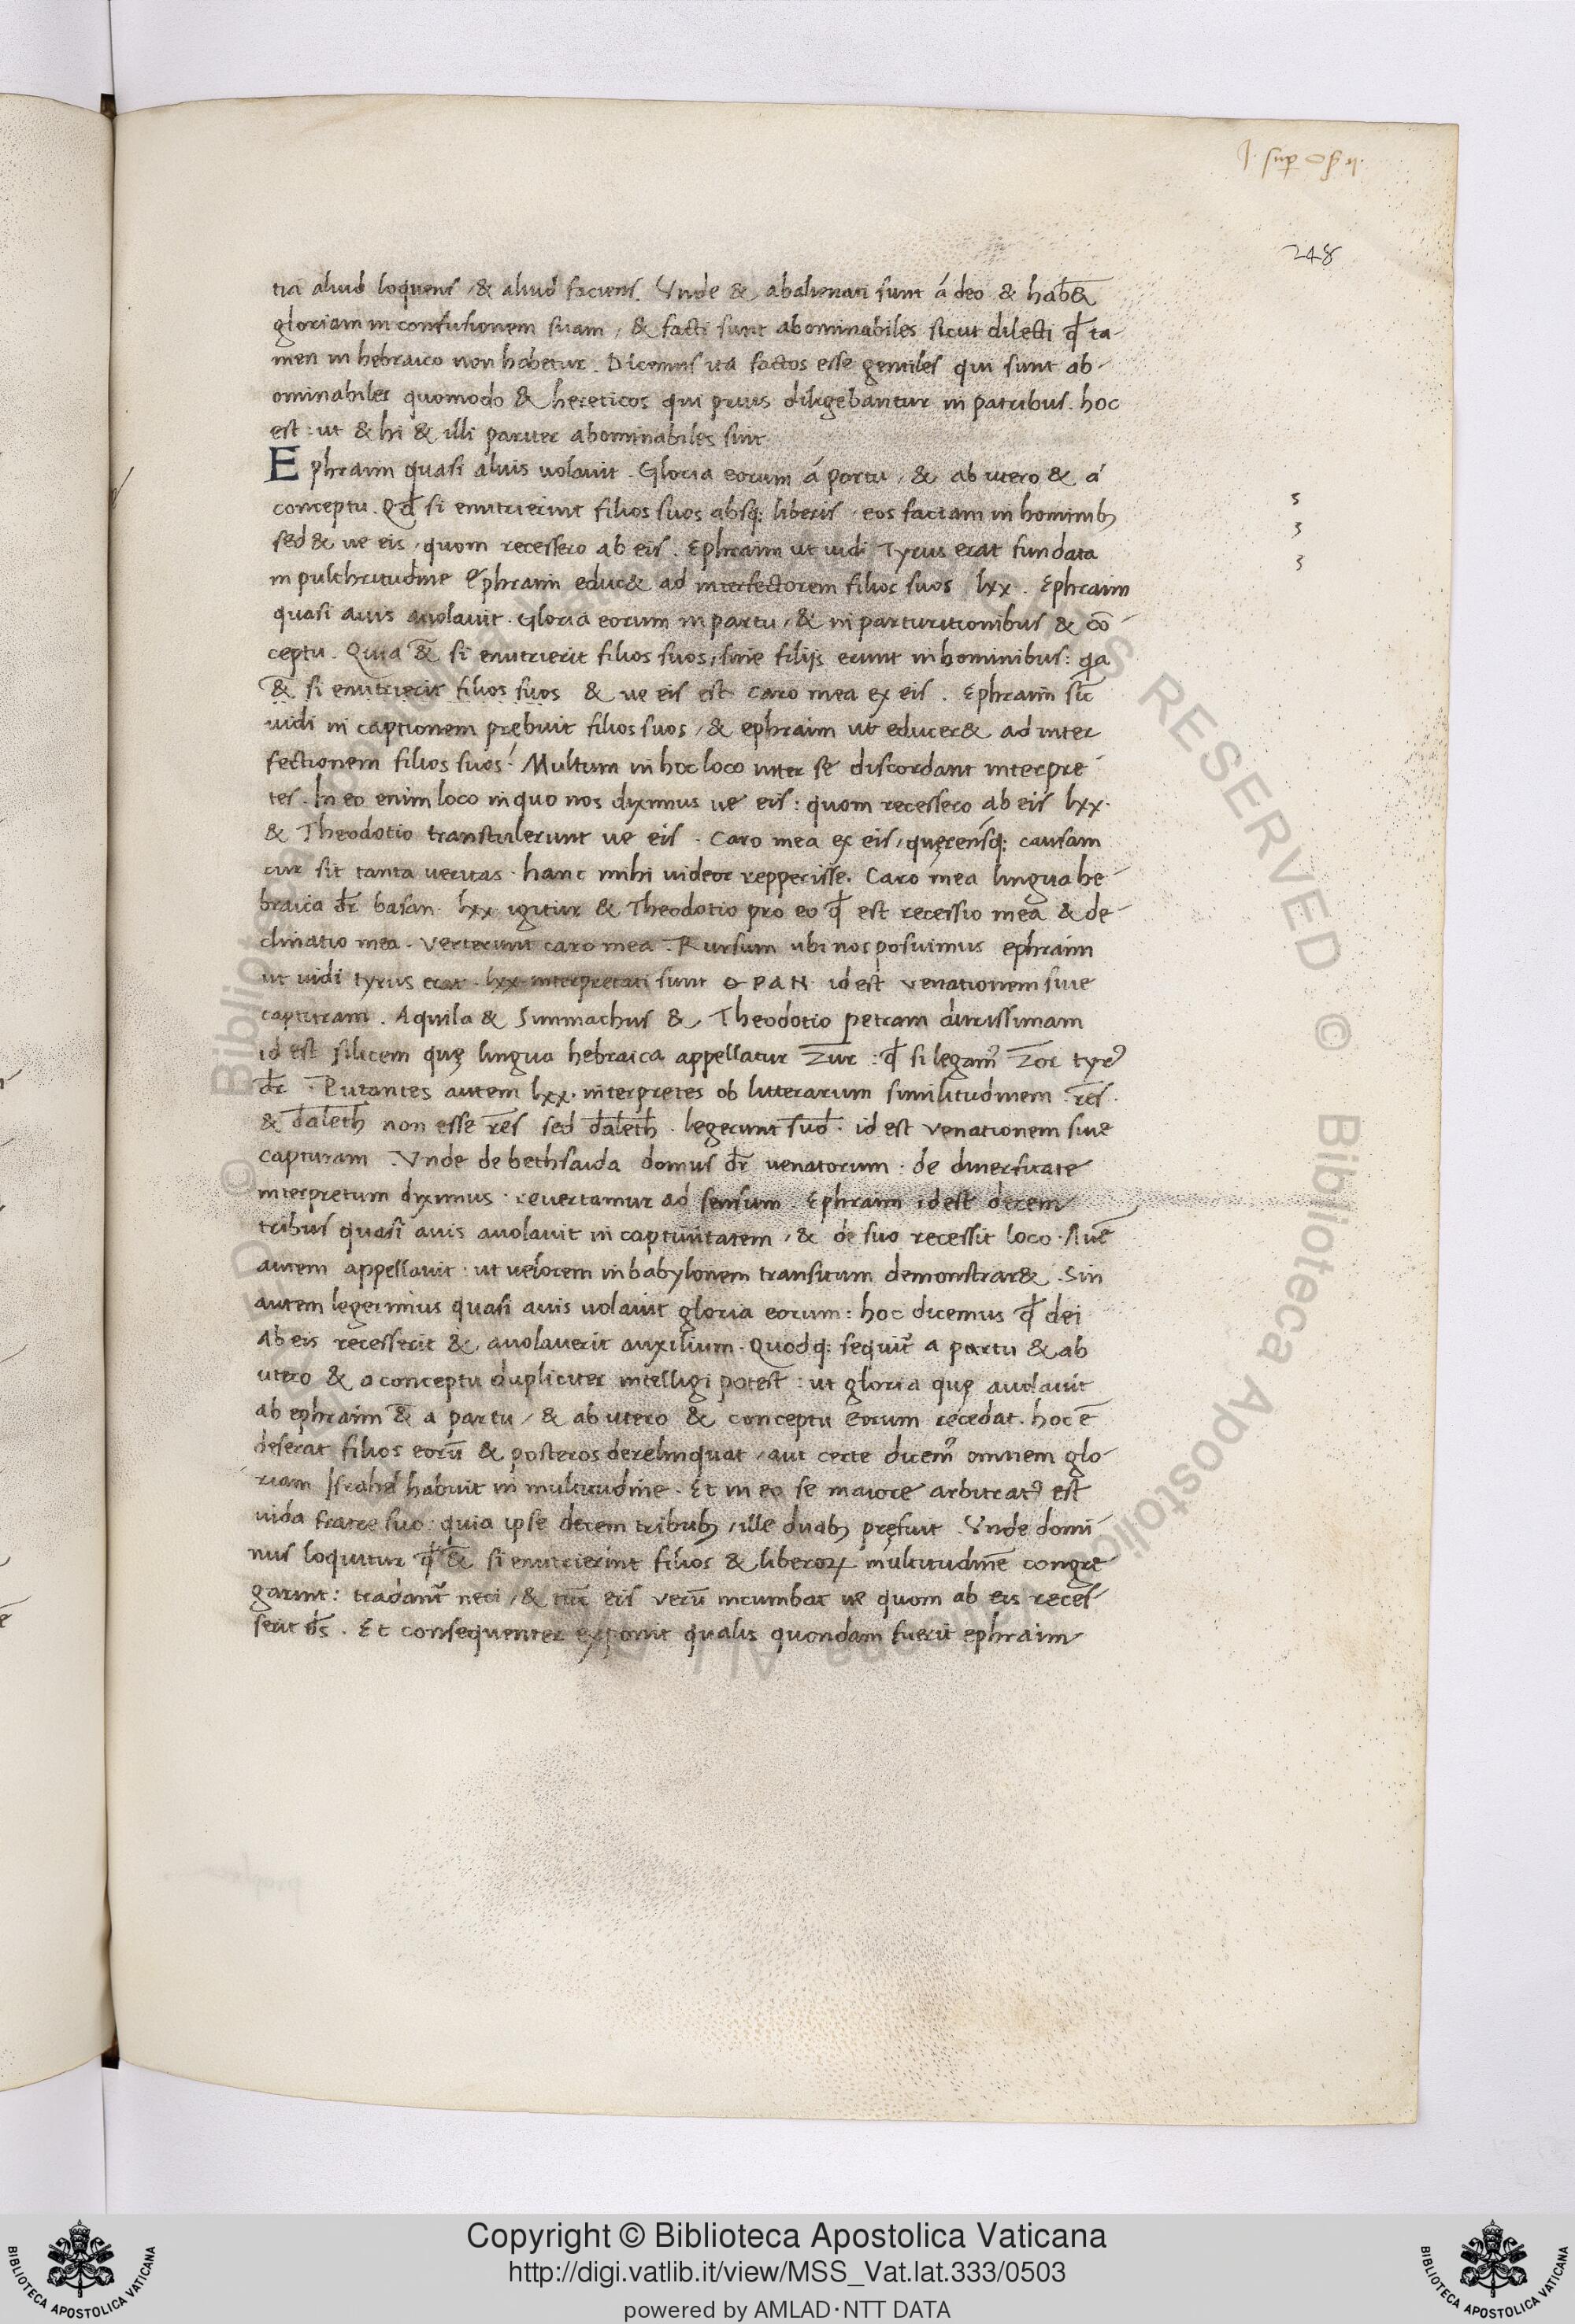 J. sup osee
248
tia aliud loquens, & aliud faciens. Vnde & abalienati sunt á deo & hab&
gloriam in confusionem suam, & facti sunt abominabiles sicut dilecti qđ ta-
men in hebraico non habetur. Dicemus ita factos esse gentiles qui sunt ab-
ominabiles quomodo & hereticos qui prius diligebantur in patribus. hoc
est: ut & hi & illi pariter abominabiles sint.
Ephraim quasi aluis uolauit. Gloria eorum á partu, & ab utero & á
conceptu. Qđ si enutrierint filios suos absq; liberis, eos faciam in hominib;
sed & ue eis, quom recessero ab eis. Ephraim ut uidi Tyrus erat fundata
in pulchritudine Ephraim educ& ad interfectorem filios suos lxx. Ephraim
quasi auis auolauit. Gloria eorum in partu, & in parturitionibus & cō-
ceptu. Quia & si enutrierit filios suos, sine filijs erunt in hominibus: qa
& si enutrierit filios suos & ue eis est caro mea ex eis. Ephraim sic̄
uidi in captionem prębuit filios suos, & ephraim ut educer& ad inter
fectionem filios suos. Multum in hoc loco inter se discordant interpre-
tes. In eo enim loco in quo nos diximus ue eis: quom recessero ab eis lxx.
& Theodotio transtulerunt ue eis. Caro mea ex eis, quęrensq; causam
cur sit tanta ueritas. hanc mihi uideor repperisse. Caro mea lingua he-
braica dr̄ basan. lxx. igitur & Theodotio pro eo qđ est recessio mea & de-
clinatio mea. verterunt caro mea. Rursum ubi nos posuimus ephraim
ut uidi tyrus erat. lxx. interpretati sunt ΘΡΑΝ. id est venationem siue
capturam. Aquila & Simmachus & Theodotio petram durissimam
id est silicem quę lingua hebraica appellatur Zur: qđ si legam⁹ Zor tyr⁹
dr̄. Putantes autem lxx. interpretes ob litterarum similitudinem rēs.
& dāleth non esse rēs sed dāleth. legerunt sūd. id est venationem siue
capturam. Vnde de bethsaida domus dr̄ uenatorum. de diuersitate
interpretum diximus. reuertamur ad sensum. Ephraim id est decem
tribus quasi auis auolauit in captiuitatem, & de suo recessit loco. Auē
autem appellauit: ut uelorem in babylonem transitum demonstrar&. Sin
autem legerimus quasi auis uolauit gloria eorum: hoc dicemus qđ dei
Ab eis recesserit & auolauerit auxilium. Quodq; sequit̄ a partu & ab
utero & a conceptu dupliciter intelligi potest: ut gloria quę auolauit
ab ephraim & a partu, & ab utero & conceptu eorum recedat. hoc ē
deserat filios eorū & posteros derelinquat, aut certe dicem⁹ omnem glo-
riam Israhel habuit in multitudine. Et in eo se maiore arbitrat⁹ est
iuda fratre suo: quia ipse decem tribub;, ille duab; pręfuit. Vnde domi-
nus loquitur qđ & si enutrierint filios & liberoꝝ multitudinē congre-
garint: tradant̄ neci, & tūc eis verū incumbat ue quom ab eis reces-
serit ds̄. Et consequenter exponit qualis quondam fuerit ephraim
5
3
3
Copyright © Biblioteca Apostolica Vaticana
http://digi.vatlib.it/view/MSS_Vat.lat.333/0503
powered by AMLAD·NTT DATA
BIBLIOTECA APOSTOLICA VATICANA
BIBLIOTECA APOSTOLICA VATICANA